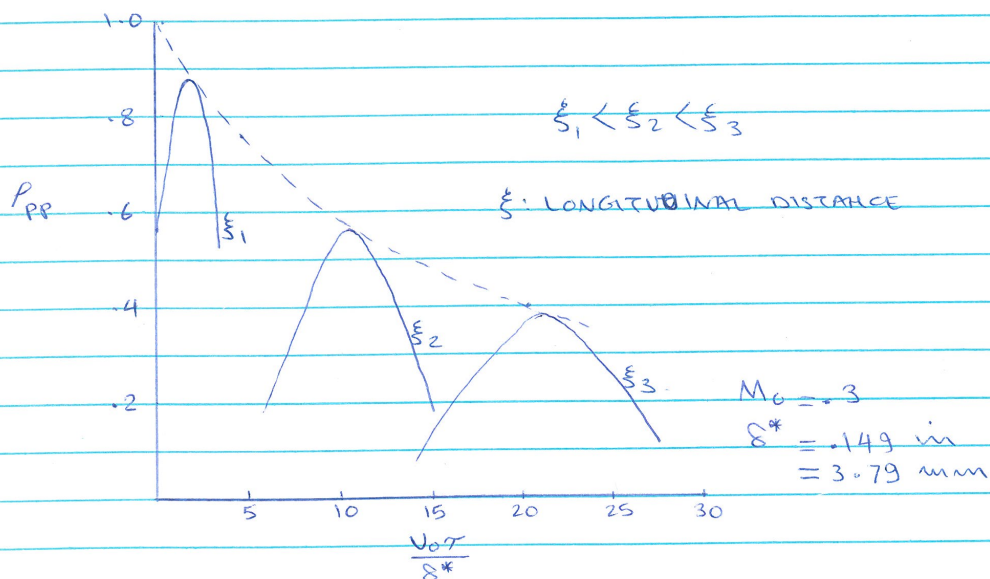 1.0
.8
ξ₁ < ξ₂ < ξ₃
ρpp
.6
ξ: LONGITUDINAL DISTANCE
ξ₁
.4
ξ₂
ξ₃
.2
M₀ = .3
δ* = .149 in
= 3.79 mm
5 10 15 20 25 30
U₀τ
δ*